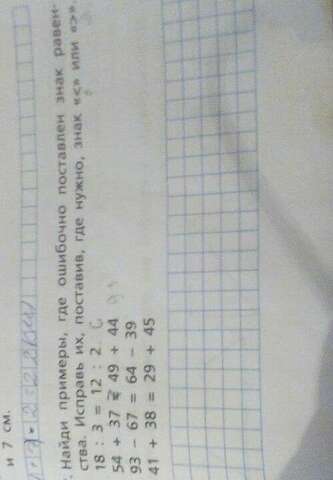 и 7 см.
Найди примеры, где ошибочно поставлен знак равен-
ства. Исправь их, поставив, где нужно, знак «<» или «>».
18 : 3 = 12 : 2
54 + 37 = 49 + 44
93 − 67 = 64 − 39
41 + 38 = 29 + 45